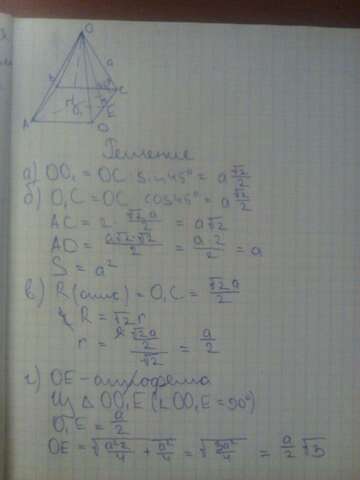 O
a
B
C
45°
O₁
E
A
D
Решение
а) OO₁ = OC · sin 45° = a √2/2
б) O₁C = OC cos 45° = a √2/2
AC = 2 · √2a/2 = a√2
AD = a√2·√2/2 = a·2/2 = a
S = a²
в) R(опис) = O₁C = √2a/2
R = √2r
r = (√2a/2)/√2 = a/2
г) OE - апофема
Из △ OO₁E (∠OO₁E = 90°)
O₁E = a/2
OE = √(a²2/4 + a²/4) = √(3a²/4) = a/2 √3